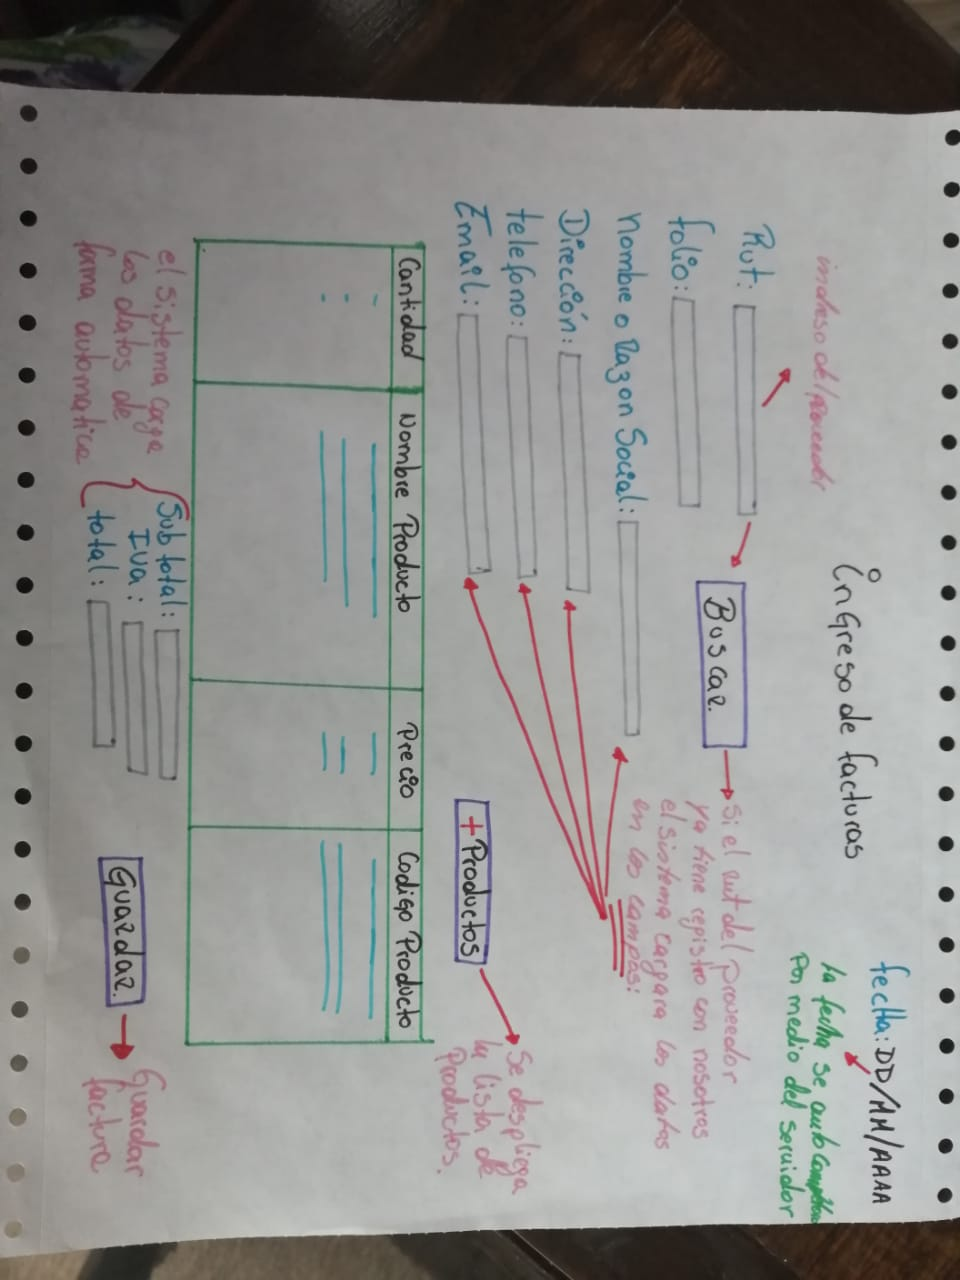 Ingreso de facturas
fecha: DD/MM/AAAA
La fecha se auto completa
Por medio del servidor
ingreso del proveedor
Rut:
Buscar.
Si el rut del proveedor
ya tiene registro con nosotros
el sistema cargara los datos
en los campos:
folio:
Nombre o Razon Social:
Dirección:
telefono:
Email:
+ Productos
Se despliega
la lista de
Productos.
Cantidad Nombre Producto Precio Codigo Producto
el sistema carga
los datos de
forma automatica
Sub total:
IVA:
total:
Guardar.
Guardar
factura